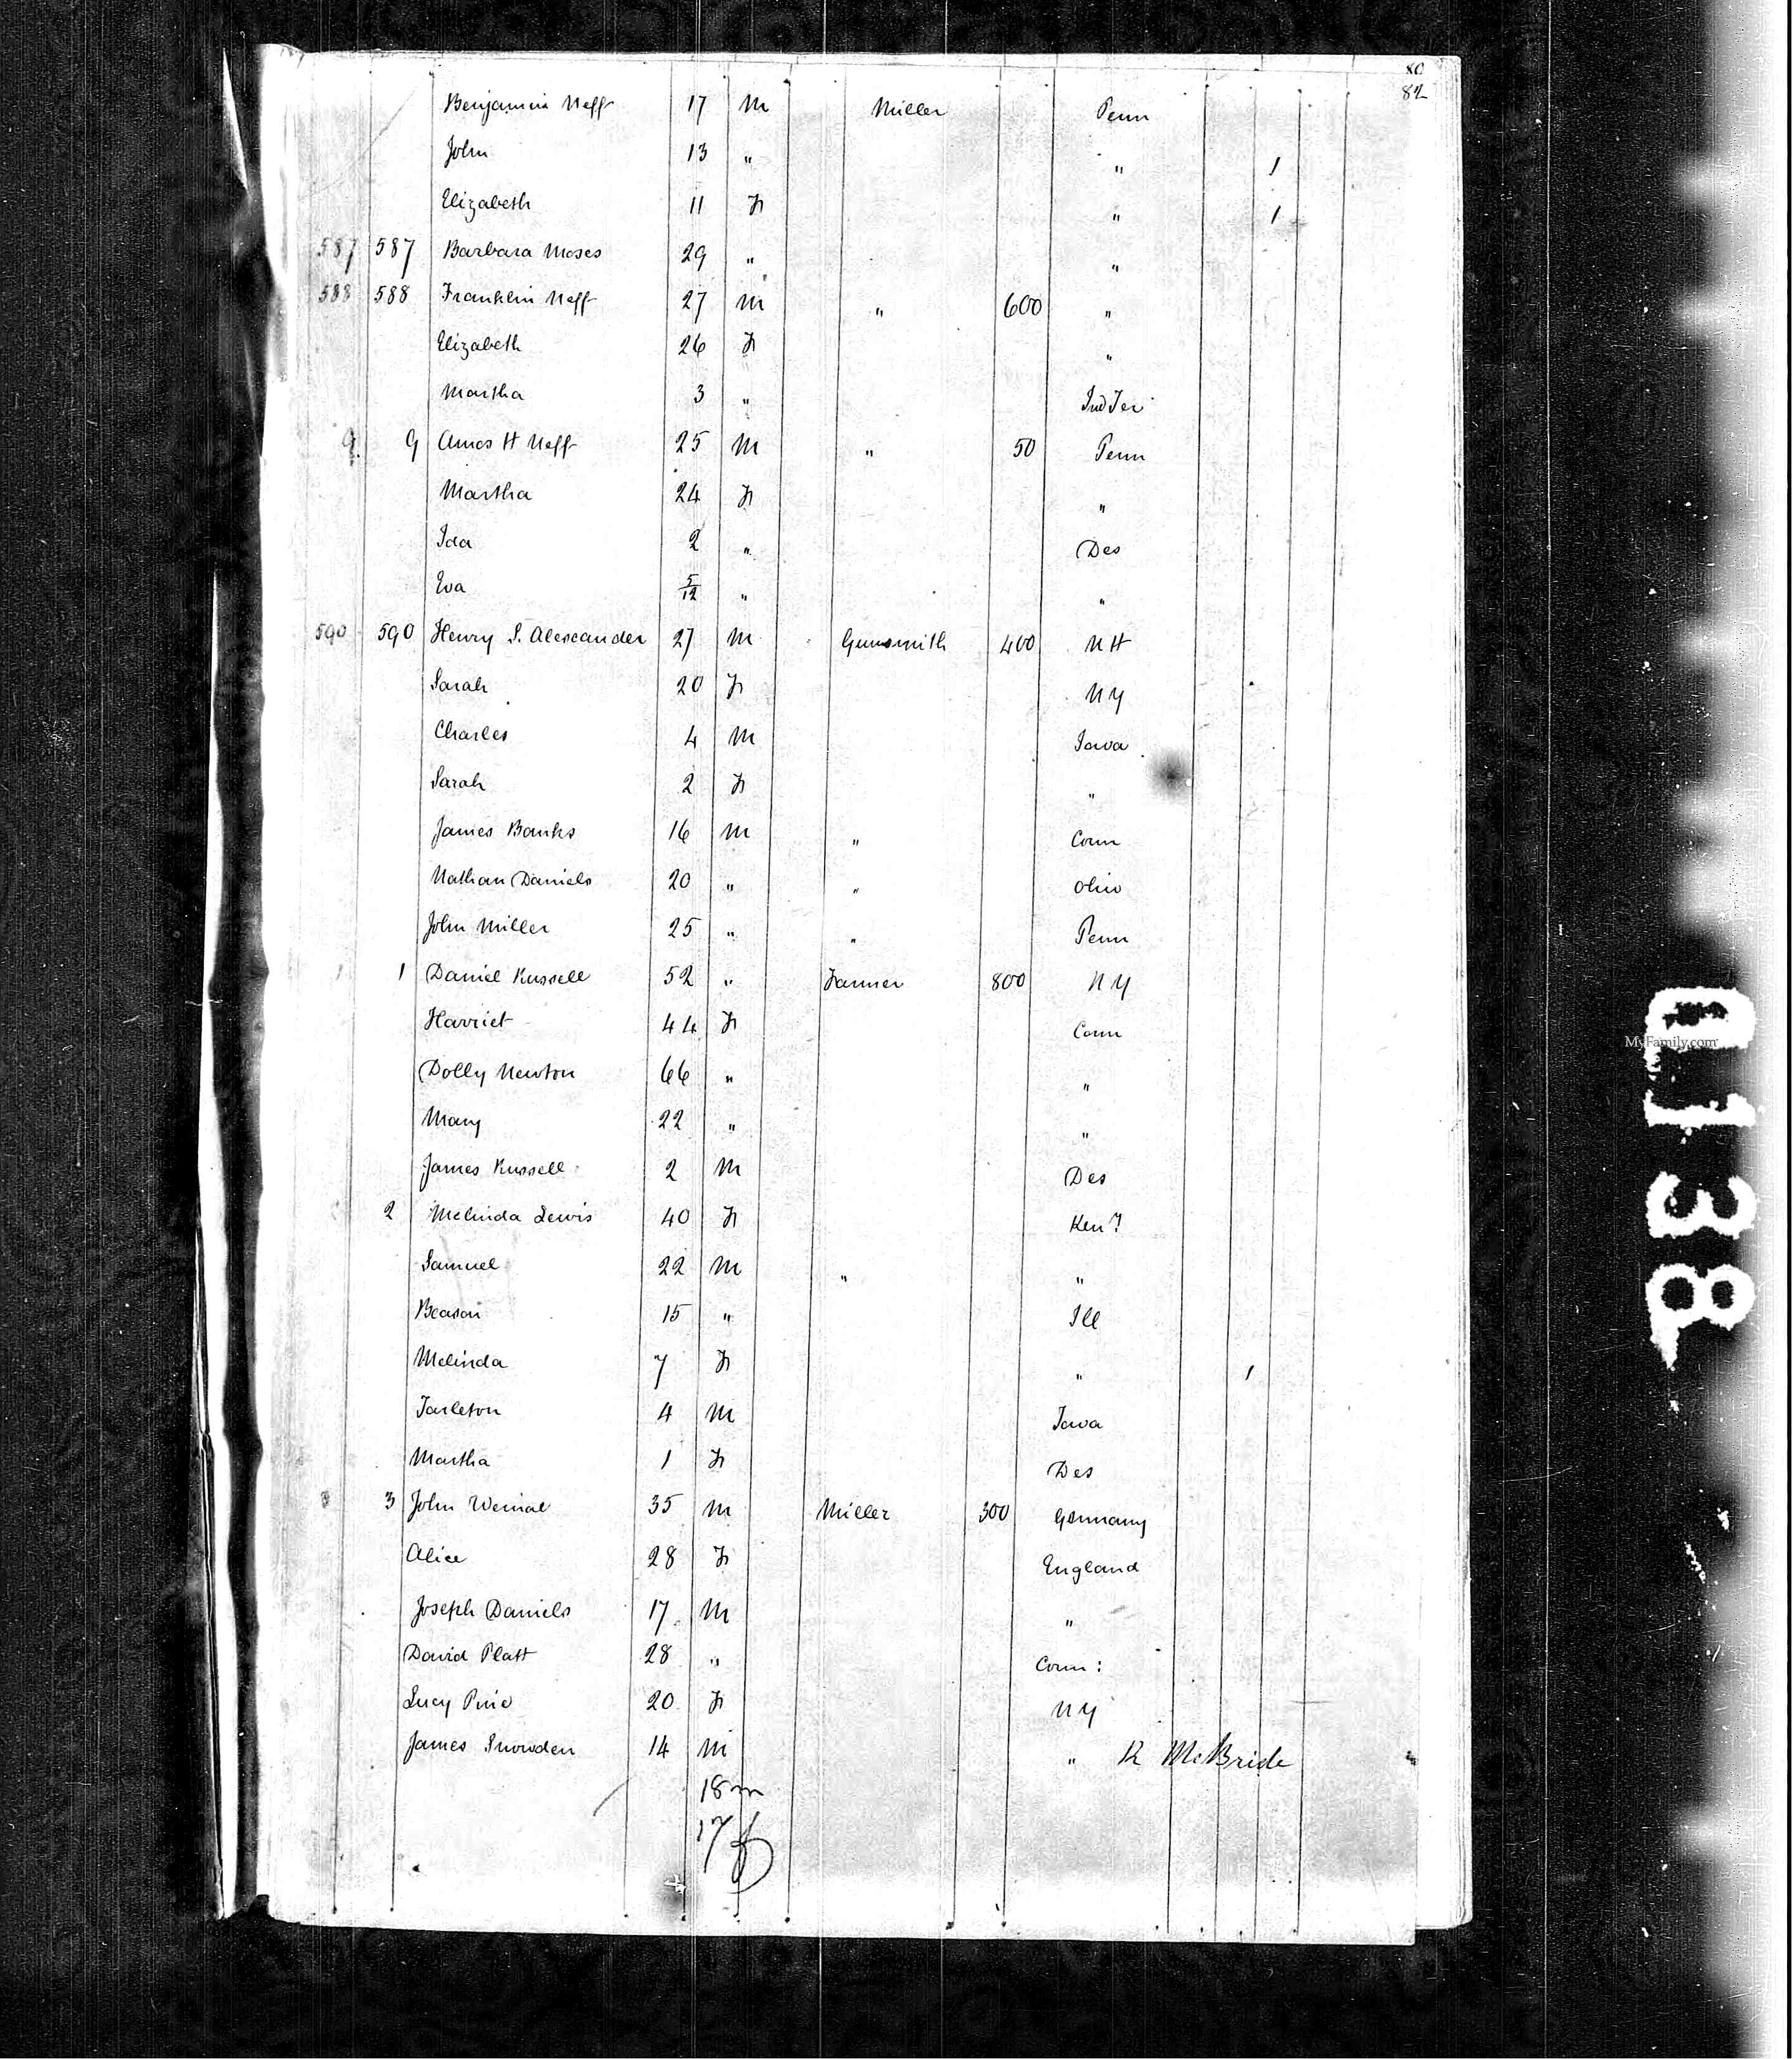 80
82
Benjamin Neff 17 M Miller Penn
John 13 " " 1
Elizabeth 11 F " 1
587 587 Barbara Moses 29 " "
588 588 Franklin Neff 27 M " 600 "
Elizabeth 26 F "
Martha 3 " Ind Ter
9 9 Amos H Neff 25 M " 50 Penn
Martha 24 F "
Ida 2 " Des
Eva 5/12 " "
590 590 Henry S. Alexcander 27 M Gunsmith 400 N H
Sarah 20 F N Y
Charles 4 M Iowa
Sarah 2 F "
James Banks 16 M " Conn
Nathan Daniels 20 " " Ohio
John Miller 25 " " Penn
1 1 Daniel Russell 52 " Farmer 800 N Y
Harriet 44 F Conn
Dolly Newton 66 " "
Mary 22 " "
James Russell 2 M Des
2 Melinda Lewis 40 F Ken
Samuel 22 M " "
Beason 15 " Ill
Melinda 7 F " 1
Tarleton 4 M Iowa
Martha 1 F Des
3 3 John 35 M Miller 300 Germany
Alice 28 F England
Joseph Daniels 17 M "
David Platt 28 " Conn:
Lucy 20 F N Y
James Snowden 14 M " R McBride
18 m
17 f
MyFamily.com
0138